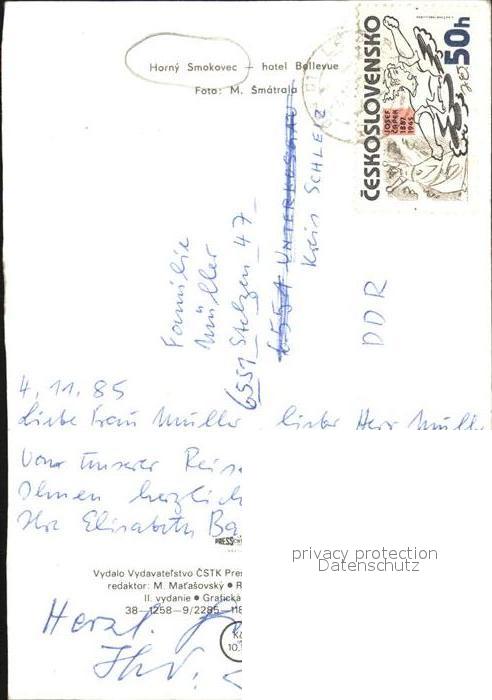 Horný Smokovec — hotel Bellevue
Foto: M. Šmátrala
ČESKOSLOVENSKO
50h
JOSEF
ČAPEK
1887
1945
Familie
Müller
6551 Stelzen 47
6554 UNTERKOSKAU
Kreis SCHLEIZ
DDR
4. 11. 85
Liebe Frau Müller, lieber Herr Müll
Von unserer Reise
Ihnen herzlich
Ihre Elisabeth Ba
PRESS
Vydalo Vydavateľstvo ČSTK Pres
redaktor: M. Maťašovský ● R
II. vydanie ● Grafická
38—1258—9/2285—118
Herzl.
Ihr.
privacy protection
Datenschutz